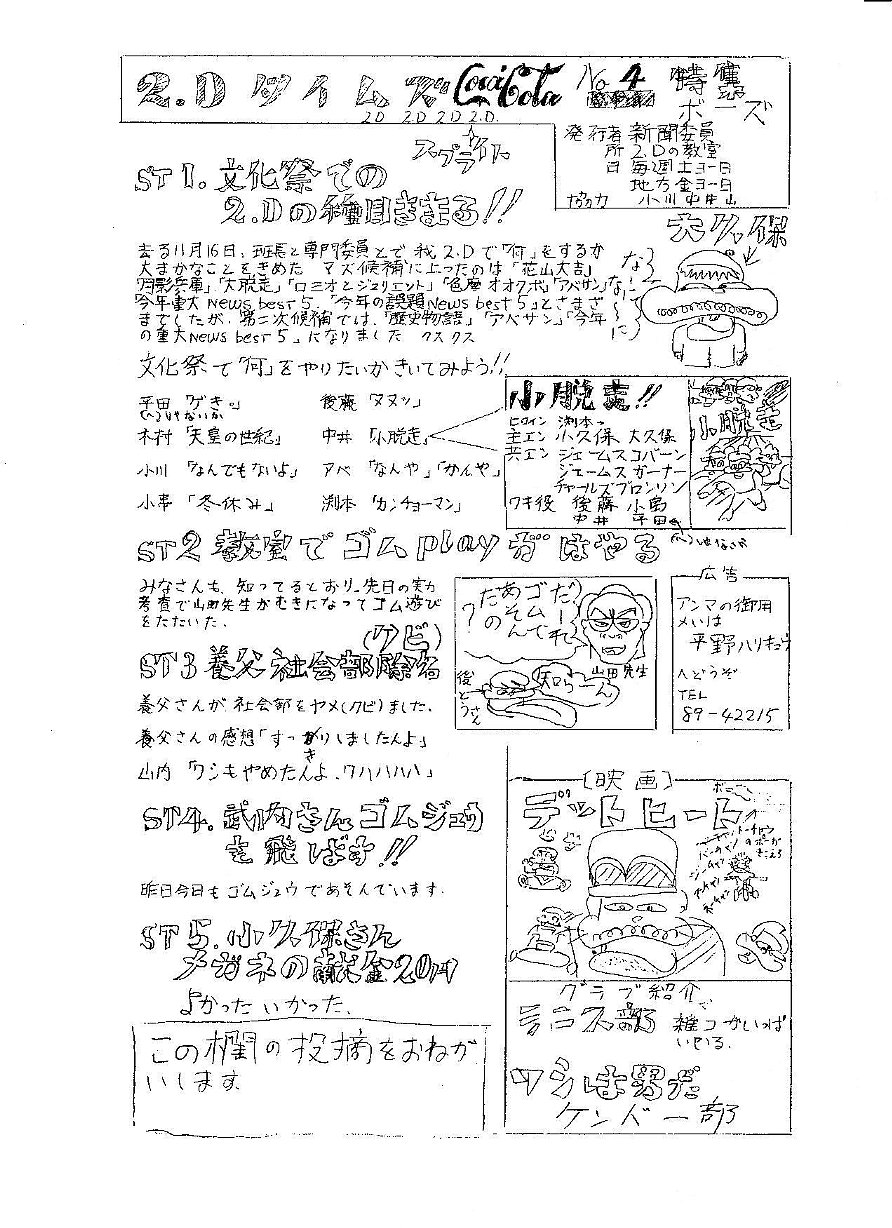 2.D タイムズ Coca Cola No 4 特集
ボーズ
2D 2D 2D 2.D.
スプライト
発行者 新聞委員
所 2.Dの教室
日 毎週土ヨー日
地方金ヨー日
ST1.文化祭での
2.Dの種目きまる!!
去る11月16日、班長と専門委員とで 我2.Dで「何」をするか
大まかなことをきめた マズ候補に上ったのは「花山大吉」
「月影兵庫」「大脱走」「ロミオとジュリエット」「色魔 オオクボ」「アベサン」
「今年重大News best5.「今年の話題News best5」とさまざ
までしたが、第二次候補では、「歴史物語」「アベサン」「今年
の重大News best5」になりました クスクス
大久保
な〜
なーに
文化祭で「何」をやりたいかきいてみよう!!
平田 「ゲキ。」 後藤 「ヌヌッ」
木村 「天皇の世紀」 中井 「小脱走」
小川 「なんでもないよ」 アベ 「なんや」「かんや」
小串 「冬休み」 渕本 「カンチョーマン」
小脱走!!
ヒロイン 渕本
主エン 小久保 大久保
共エン ジェームスコバーン
ジェームスガーナー
チャールズブロンソン
ワキ役 後藤 小島
中井 平田
小脱走
ST2 教室でゴムplayがはやる
みなさんも、知ってるとおり、先日の実力
考査で山田先生がむきになってゴム遊び
をたたいた。
だーれ
ゴムで
あそん
だの
?
山田先生
知らーん
後とうさん
広告
アンマの御用
メいは
平野ハリキュウ
へどうぞ
TEL
89-42215
(クビ)
ST3 養父社会部除名
養父さんが社会部をヤメ(クビ)ました.
養父さんの感想「すっきりしましたんよ」
山内 「ワシもやめたんよ、ワハハハハ」
ST4.武内さんゴムジュウ
を飛ばす!!
昨日今日もゴムジュウであそんでいます.
ST5.小久保さん
メガネの献金20円
よかった いかった.
この欄の投摘をおねが
いします
〔映画〕
デットヒート
クラブ紹介
テニス部 雑コがいっぱ
いでる.
ワシは男だ
ケンドー部